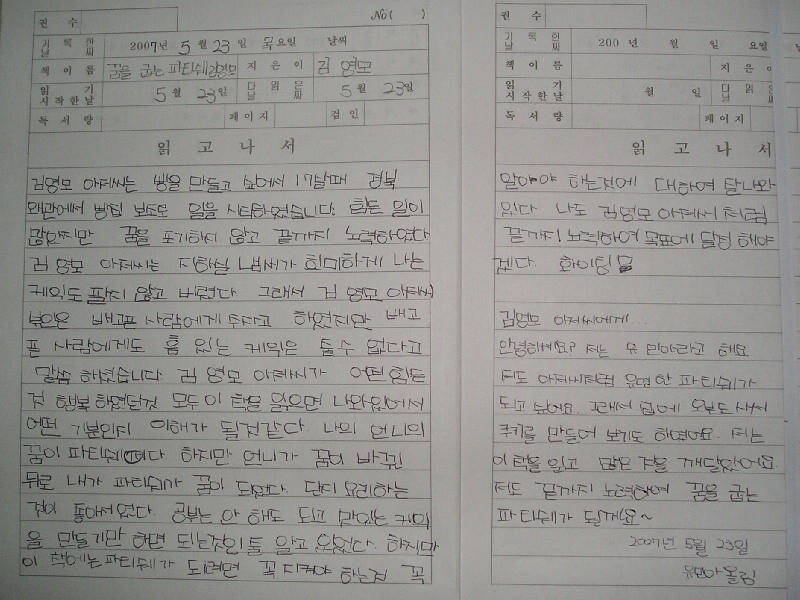 No( )
권 수
기록한 날씨 2007년 5월 23일 목요일 날씨
책이름 꿈을 굽는 파티쉐 김영모 지은이 김영모
읽기 시작한날 5월 23일 다 읽은 날 5월 23일
독서량 페이지 검인
읽고나서
김영모 아저씨는 빵을 만들고 싶어서 17살때 경북
왜관에서 빵집 보조로 일을 시작하였습니다. 힘든 일이
많았지만 꿈을 포기하지 않고 끝까지 노력하였다
김 영모 아저씨는 지하실 냄새가 희미하게 나는
케익도 팔지 않고 버렸다. 그래서 김 영모 아저씨
부인은 배고픈 사람에게 주자고 하였지만 배고
픈 사람에게도 흠 있는 케익은 줄수 없다고
말씀 하셨습니다. 김 영모 아저씨가 어떤 힘든
것 행복 하였던것 모두 이 책을 읽으면 나와있어서
어떤 기분인지 이해가 될것같다. 나의 언니의
꿈이 파티쉐 였다 하지만 언니가 꿈이 바뀐
뒤로 내가 파티쉐가 꿈이 되었다. 단지 요리하는
것이 좋아서였다. 공부는 안 해도 되고 맛있는 케익
을 만들기만 하면 되는것인 줄 알고 있었다. 하지만
이 책에는 파티쉐가 되려면 꼭 지켜야 하는것 꼭
권 수
기록한 날씨 200 년 월 일 요일
책이름 지은이
읽기 시작한날 월 일 다 읽은 날
독서량 페이지
읽고나서
알아야 하는것에 대하여 잘 나와
있다. 나도 김영모 아저씨 처럼
끝까지 노력하여 목표에 달성 해야
겠다. 화이팅
김영모 아저씨에게...
안녕하세요? 저는 유 민아라고 해요
저도 아저씨처럼 유명한 파티쉐가
되고 싶어요. 그래서 집에 오븐도 사서
쿠키를 만들어 보기도 하였어요. 저는
이 책을 읽고 많은 것을 깨달았어요.
저도 끝까지 노력하여 꿈을 굽는
파티쉐가 될게요~
2007년 5월 23일
유민아올림